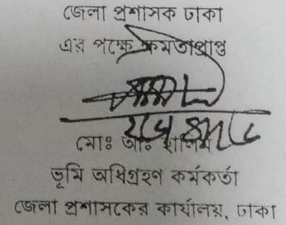 জেলা প্রশাসক ঢাকা
এর পক্ষে ক্ষমতাপ্রাপ্ত
মোঃ আঃ হালিম
ভূমি অধিগ্রহণ কর্মকর্তা
জেলা প্রশাসকের কার্যালয়, ঢাকা